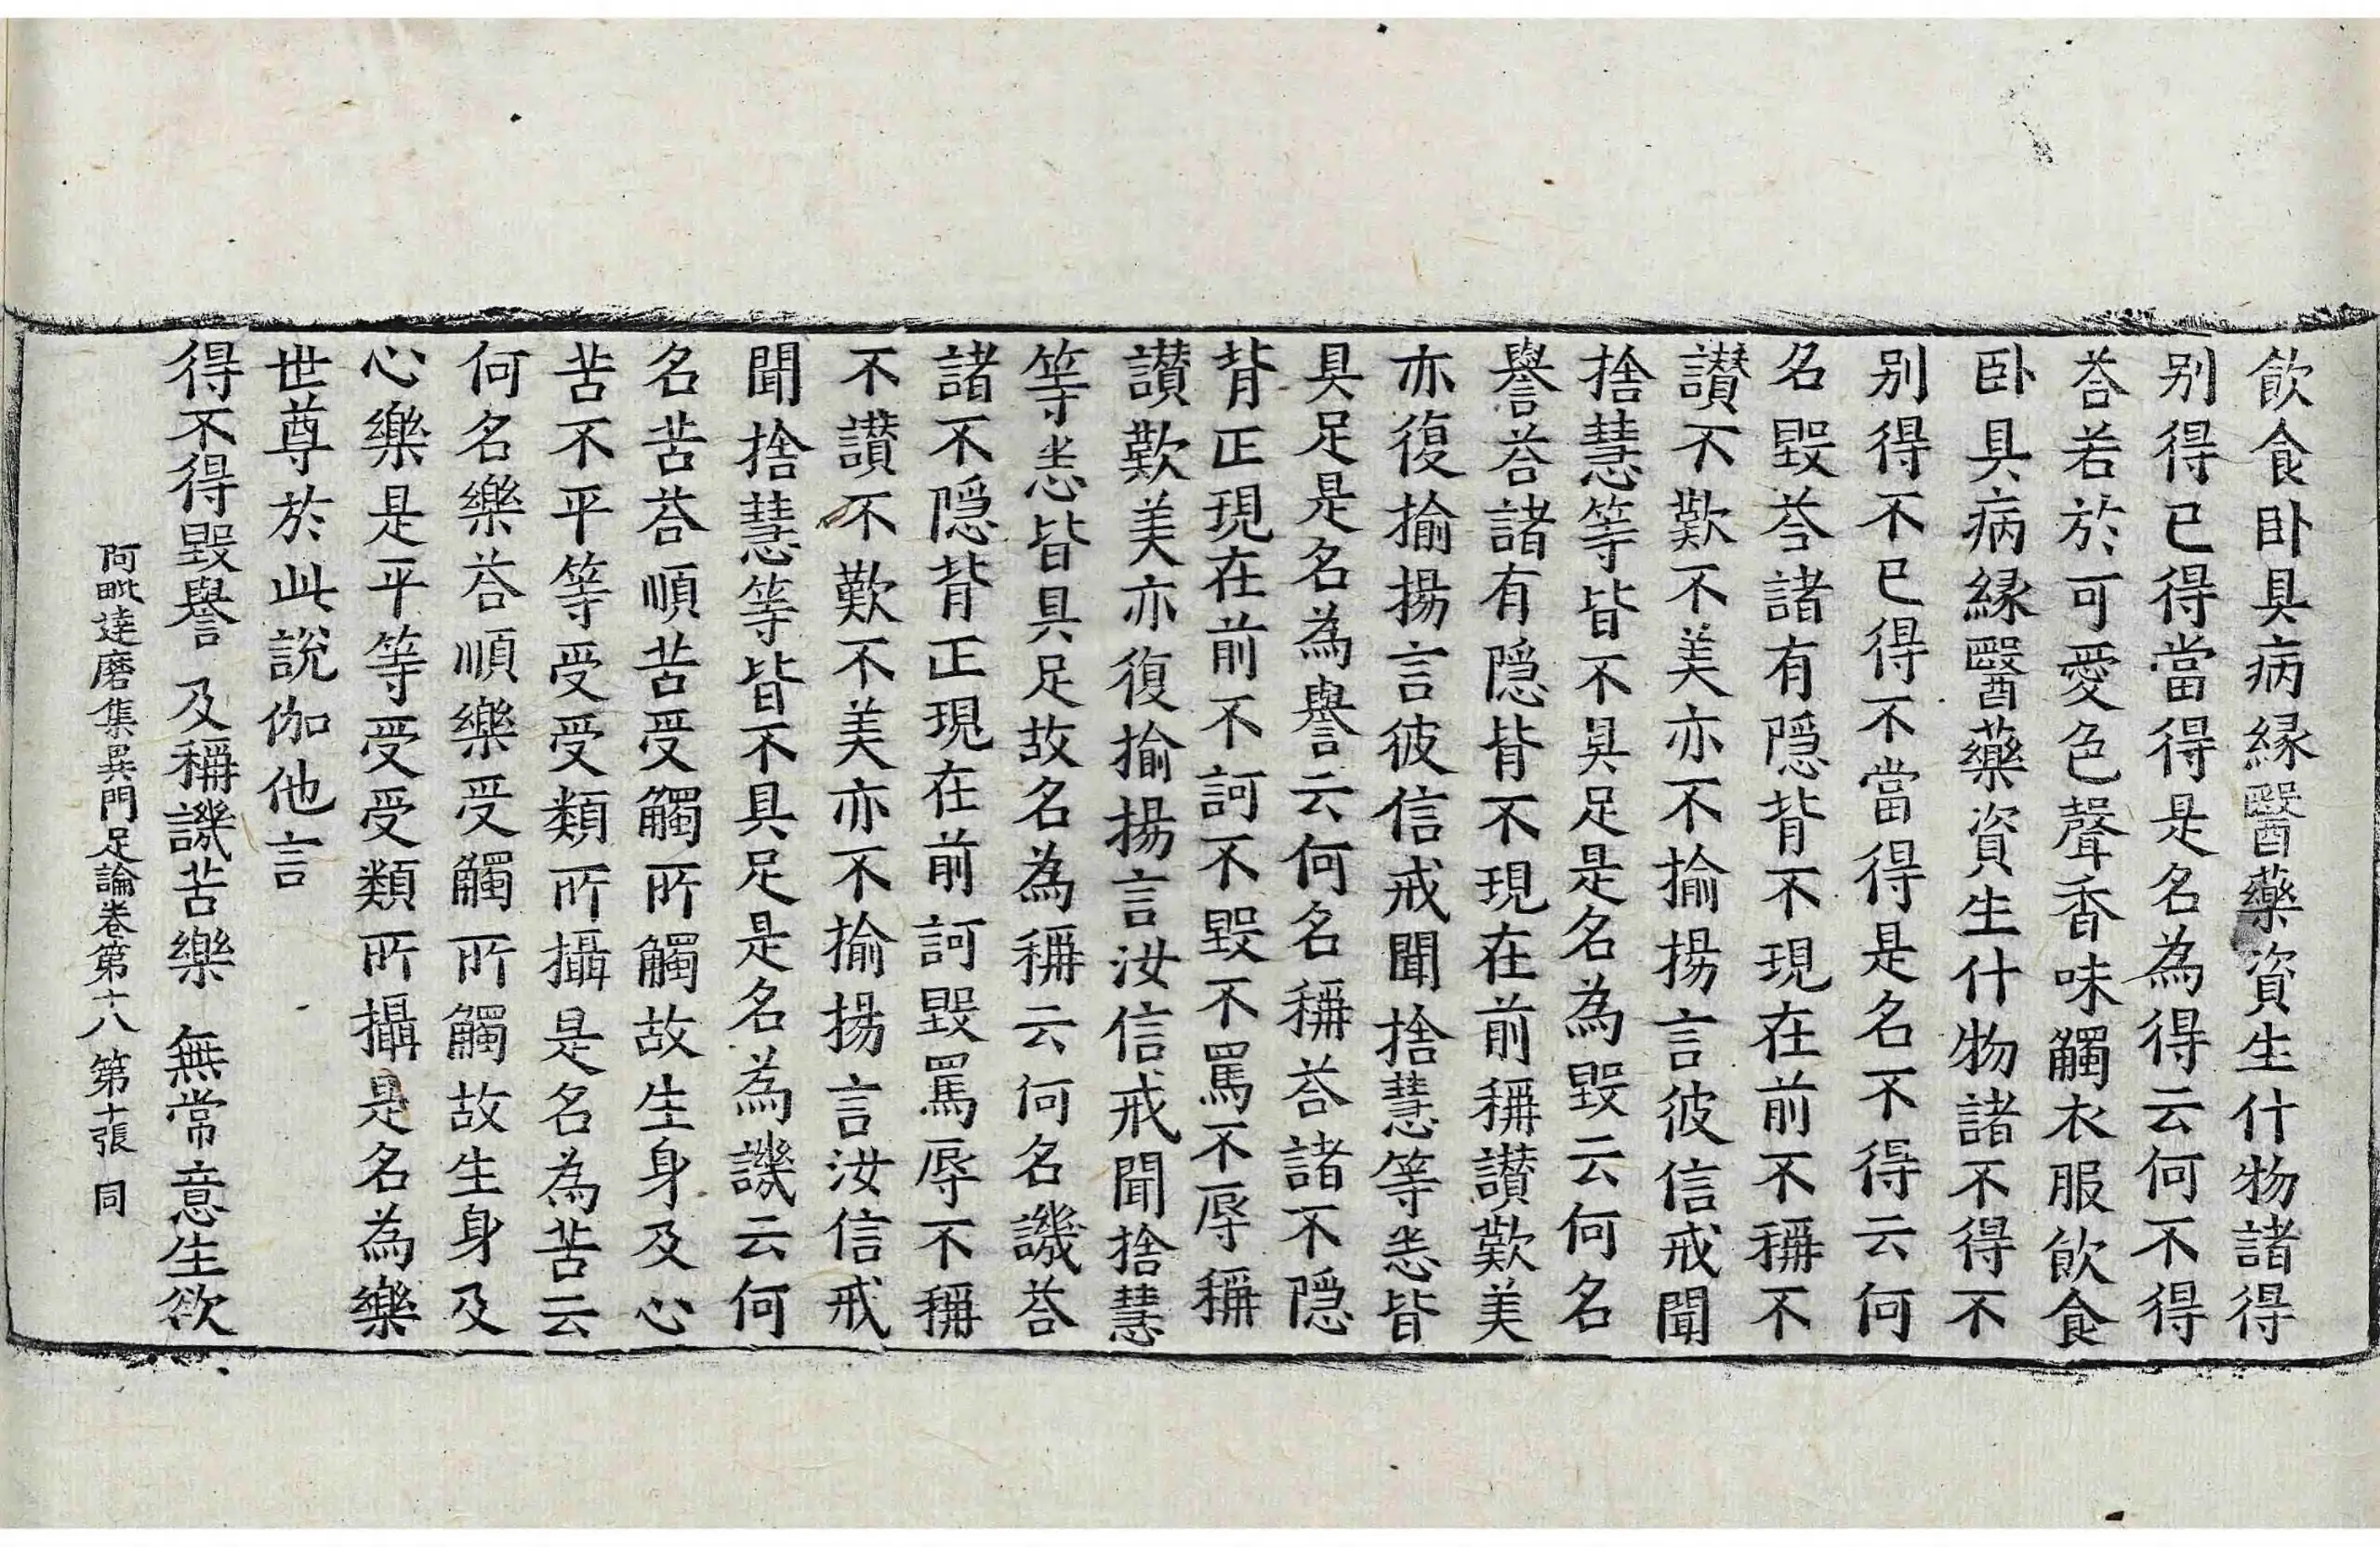 飲食卧具病縁醫藥資生什物諸得
别得已得當得是名為得云何不得
荅若於可愛色聲香味觸衣服飲食
卧具病縁醫藥資生什物諸不得不
别得不已得不當得是名不得云何
名毀荅諸有隠背不現在前不稱不
讃不歎不美亦不揄揚言彼信戒聞
捨慧等皆不具足是名為毀云何名
譽荅諸有隠背不現在前稱讃歎美
亦復揄揚言彼信戒聞捨慧等悉皆
具足是名為譽云何名稱荅諸不隠
背正現在前不訶不毀不罵不辱稱
讃歎美亦復揄揚言汝信戒聞捨慧
等悉皆具足故名為稱云何名譏荅
諸不隠背正現在前訶毀罵辱不稱
不讃不歎不美亦不揄揚言汝信戒
聞捨慧等皆不具足是名為譏云何
名苦荅順苦受觸所觸故生身及心
苦不平等受受類所攝是名為苦云
何名樂荅順樂受觸所觸故生身及
心樂是平等受受類所攝是名為樂
世尊於此說伽他言
得不得毀譽 及稱譏苦樂 無常意生欲
阿毗達磨集異門足論卷第十八 第十張 同